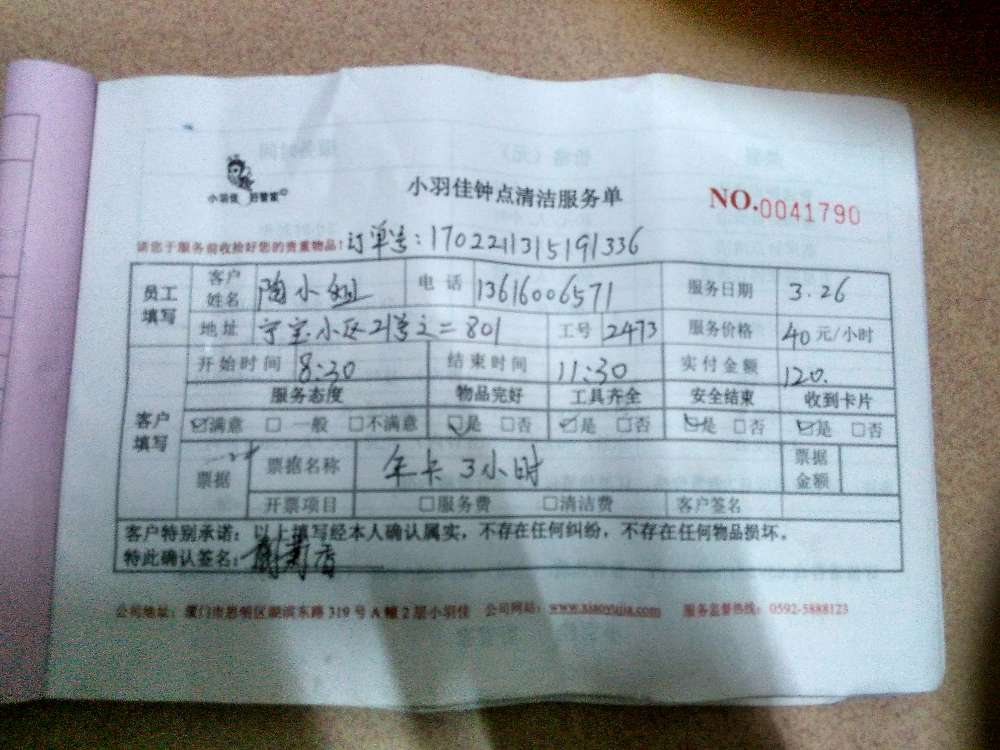 小羽佳 好管家
小羽佳钟点清洁服务单
NO.0041790
请您于服务前收拾好您的贵重物品！订单号：1702211315191336
员工填写 客户姓名 陶小姐 电话 13616006571 服务日期 3.26
地址 宁宝小区21号之二801 工号 2473 服务价格 40元/小时
客户填写 开始时间 8:30 结束时间 11:30 实付金额 120.
服务态度 物品完好 工具齐全 安全结束 收到卡片
☑满意 □一般 □不满意 ☑是 □否 ☑是 □否 ☑是 □否 ☑是 □否
票据 票据名称 年卡3小时 票据金额
开票项目 □服务费 □清洁费 客户签名
客户特别承诺：以上填写经本人确认属实，不存在任何纠纷，不存在任何物品损坏。
特此确认签名：
公司地址：厦门市思明区湖滨东路319号A幢2层小羽佳 公司网站：www.xiaoyujia.com 服务监督热线：0592-5888123